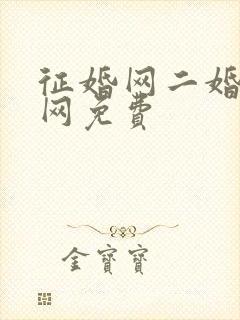 征婚网二婚
网免费
金寳寳